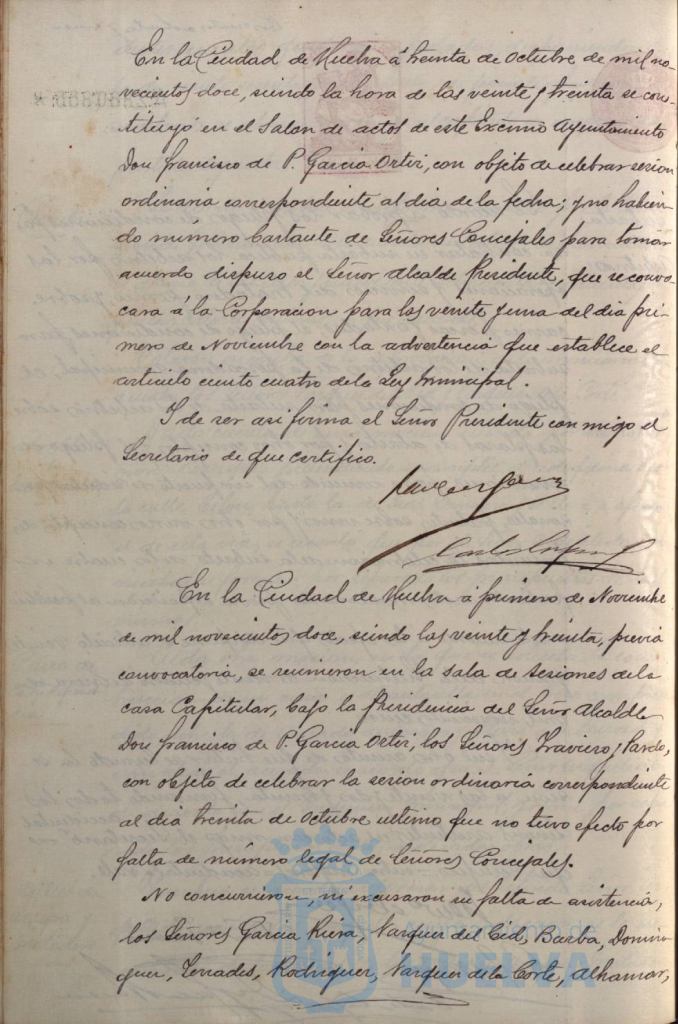 En la Ciudad de Huelva á treinta de Octubre de mil no-
vecientos doce, siendo la hora de las veinte y treinta se cons-
tituyó en el Salon de actos de este Excmo Ayuntamiento
Don Francisco de P. Garcia Ortiz, con objeto de celebrar sesion
ordinaria correspondiente al dia de la fecha; y no habien-
do número bastante de Señores Concejales para tomar
acuerdo dispuso el Señor Alcalde Presidente, que se convo-
cara á la Corporacion para las veinte y una del dia pri-
mero de Noviembre con la advertencia que establece el
articulo ciento cuatro de la Ley Municipal.
Y de ser asi firma el Señor Presidente conmigo el
Secretario de que certifico.
En la Ciudad de Huelva á primero de Noviembre
de mil novecientos doce, siendo las veinte y treinta, previa
convocatoria, se reunieron en la sala de sesiones de la
casa Capitular, bajo la Presidencia del Señor Alcalde
Don Francisco de P. Garcia Ortiz, los Señores Traviero y Pardo,
con objeto de celebrar la sesion ordinaria correspondiente
al dia treinta de Octubre ultimo que no tuvo efecto por
falta de número legal de Señores Concejales.
No concurrieron, ni excusaron su falta de asistencia,
los Señores Garcia Riera, Vazquez del Cid, Barba, Domin-
guez, Terrades, Rodriguez, Vazquez de la Corte, Alhamar,
HUELVA